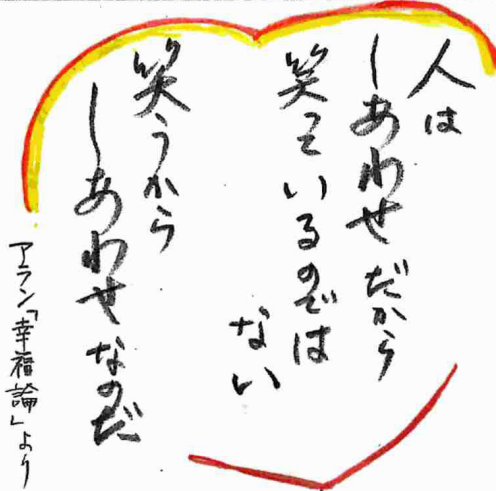 人は
しあわせだから
笑っているのでは
ない
笑うから
しあわせなのだ
アラン「幸福論」より